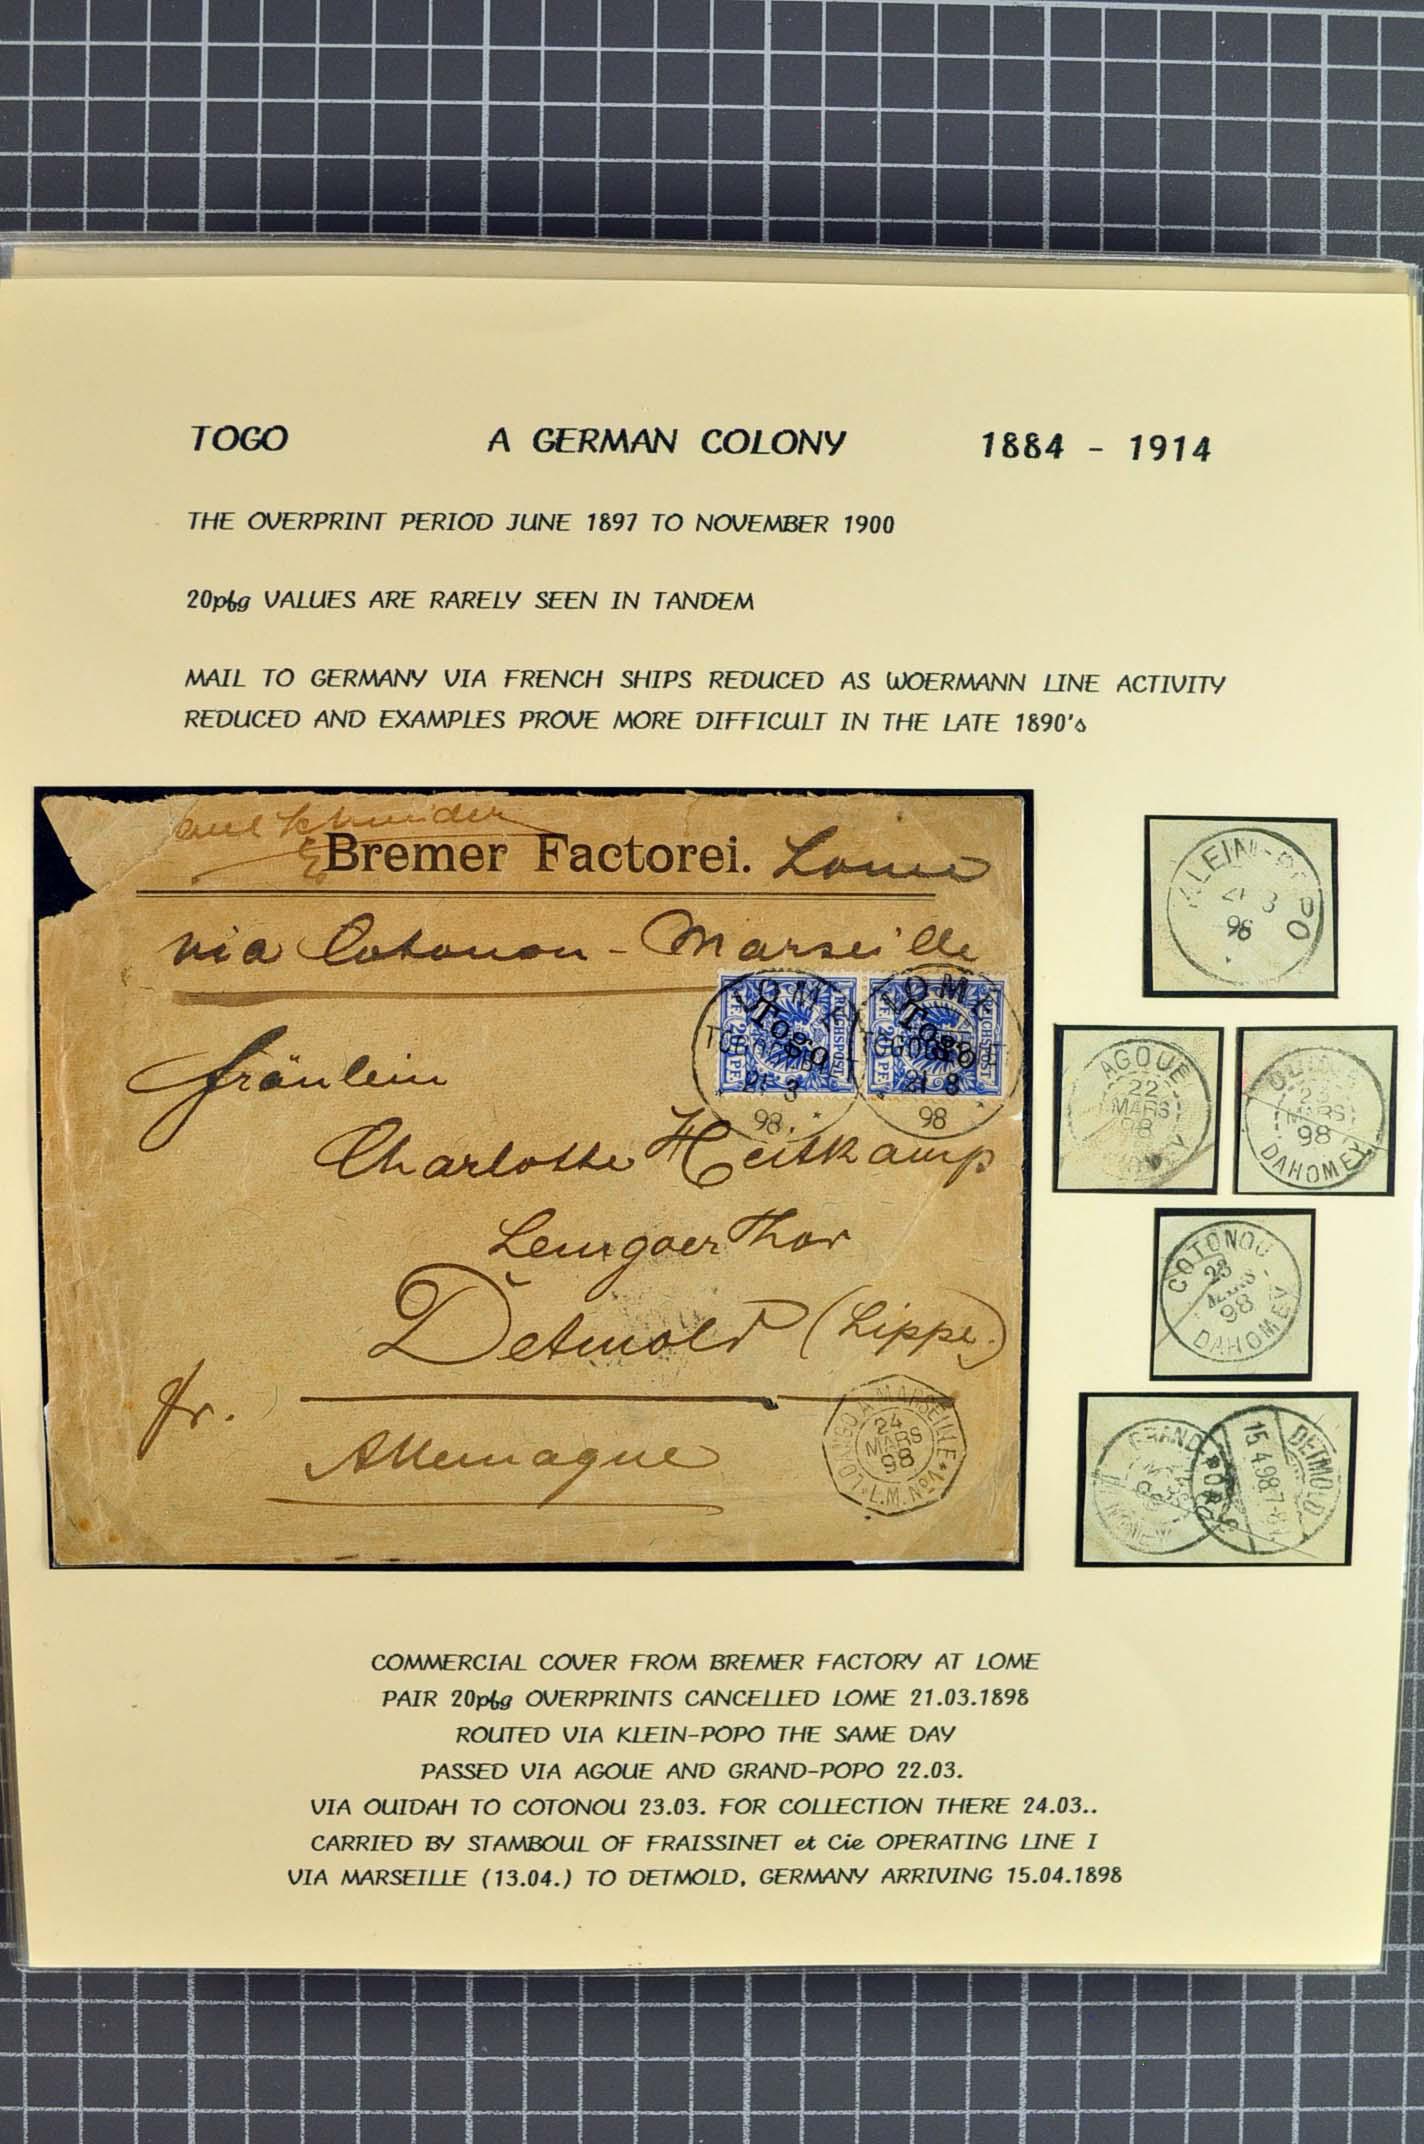 TOGO A GERMAN COLONY 1884 - 1914
THE OVERPRINT PERIOD JUNE 1897 TO NOVEMBER 1900
20pfg VALUES ARE RARELY SEEN IN TANDEM
MAIL TO GERMANY VIA FRENCH SHIPS REDUCED AS WOERMANN LINE ACTIVITY
REDUCED AND EXAMPLES PROVE MORE DIFFICULT IN THE LATE 1890's
Schneider
Bremer Factorei. Lome
via Cotonou - Marseille
Fräulein
Charlotte Heitkamp
Lemgoer Thor
Detmold (Lippe.)
fr.
Allemagne
REICHSPOST
PF. 20 PF.
Togo
LOME
TOGOGEBIET
21 3
98.
REICHSPOST
PF. 20 PF.
Togo
LOME
TOGOGEBIET
21 3
98
LOANGO A MARSEILLE
24
MARS
98
L.M. No 1
KLEIN-POPO
21 3
98
AGOUE
22
MARS
98
23
MARS
98
DAHOMEY
COTONOU
23
MARS
98
DAHOMEY
GRAND POPO
BENIN
DETMOLD
15.4.98.7-8
COMMERCIAL COVER FROM BREMER FACTORY AT LOME
PAIR 20pfg OVERPRINTS CANCELLED LOME 21.03.1898
ROUTED VIA KLEIN-POPO THE SAME DAY
PASSED VIA AGOUE AND GRAND-POPO 22.03.
VIA OUIDAH TO COTONOU 23.03. FOR COLLECTION THERE 24.03..
CARRIED BY STAMBOUL OF FRAISSINET et Cie OPERATING LINE I
VIA MARSEILLE (13.04.) TO DETMOLD, GERMANY ARRIVING 15.04.1898